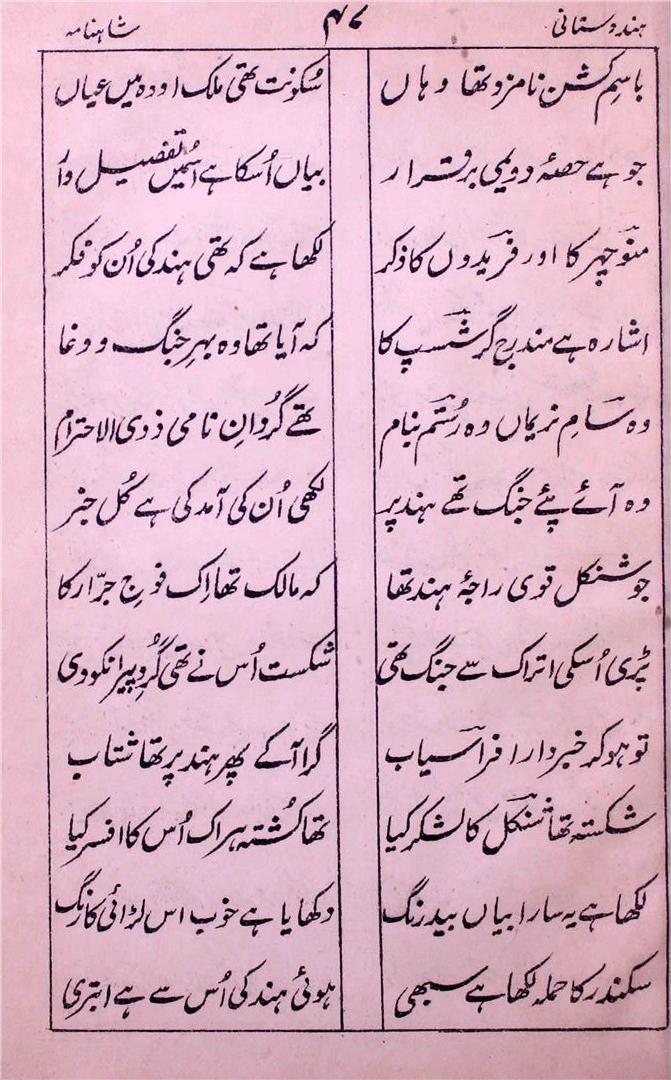 ہندوستانی ۴۷ شاہنامہ
باسمِ کشن نامزد تھا وہاں سُکونت تھی ملک اودھ میں عیاں
جو ہے حصۂ دویمی برقرار بیاں اُسکا ہے اسُمیں تفصیل وار
منوچہر کا اور فریدوں کا ذکر لکھا ہے کہ تھی ہند کی اُن کو فکر
اشارہ ہے مندرج گرشسپ کا کہ آیا تھا وہ بہرِ جنگ و وغا
وہ سامِ نریماں وہ رُستم بنام تھے گُردانِ نامی ذوی الاحترام
وہ آئے پئے جنگ تھے ہند پر لکھی اُن کی آمد کی ہے کُل خبر
جو شنکل قوی راجۂ ہند تھا کہ مالک تھا اِک فوجِ جرّار کا
پڑی اُسکی اتراک سے جنگ تھی شکست اُس نے تھی گُردِ پیرانکو دی
تو ہو کر خبردار افراسیاب گرا آ کے پھر ہند پر تھا شتاب
شکستہ تھا شنکل کا لشکر کیا تھا کُشتہ ہر اک اُس کا افسر کیا
لکھا ہے یہ سارا بیاں بیدرنگ دکھایا ہے خوب اس لڑائی کا رنگ
سکندر کا حملہ لکھا ہے سبھی ہوئی ہند کی اُس سے ہے ابتری